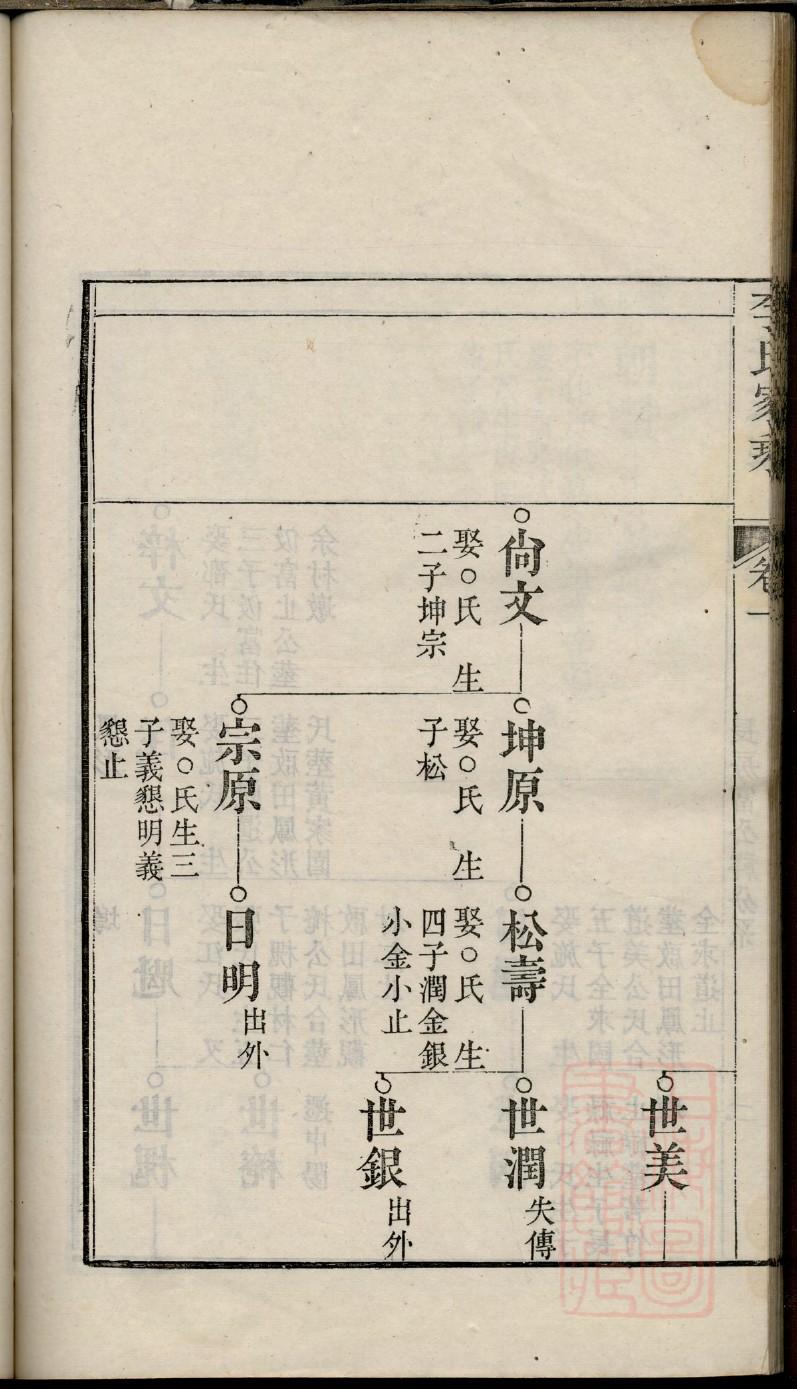 李氏家乘
卷一
世美
尙文
娶○氏 生
二子坤宗
坤原
娶○氏 生
子松
松壽
娶○氏 生
四子潤金銀
小金小止
世潤
失傳
世銀
出外
宗原
娶○氏生三
子義懇明義
懇止
日明
出外